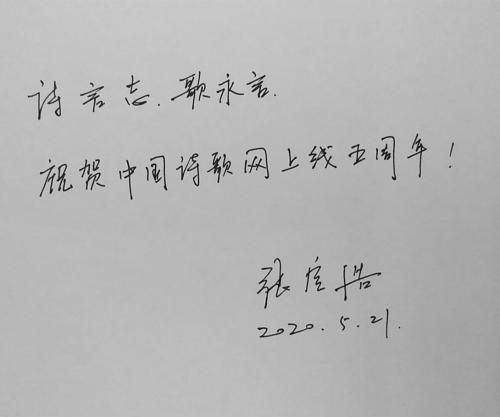 诗言志.歌永言.
祝贺中国诗歌网上线五周年!
张定浩
2020.5.21.